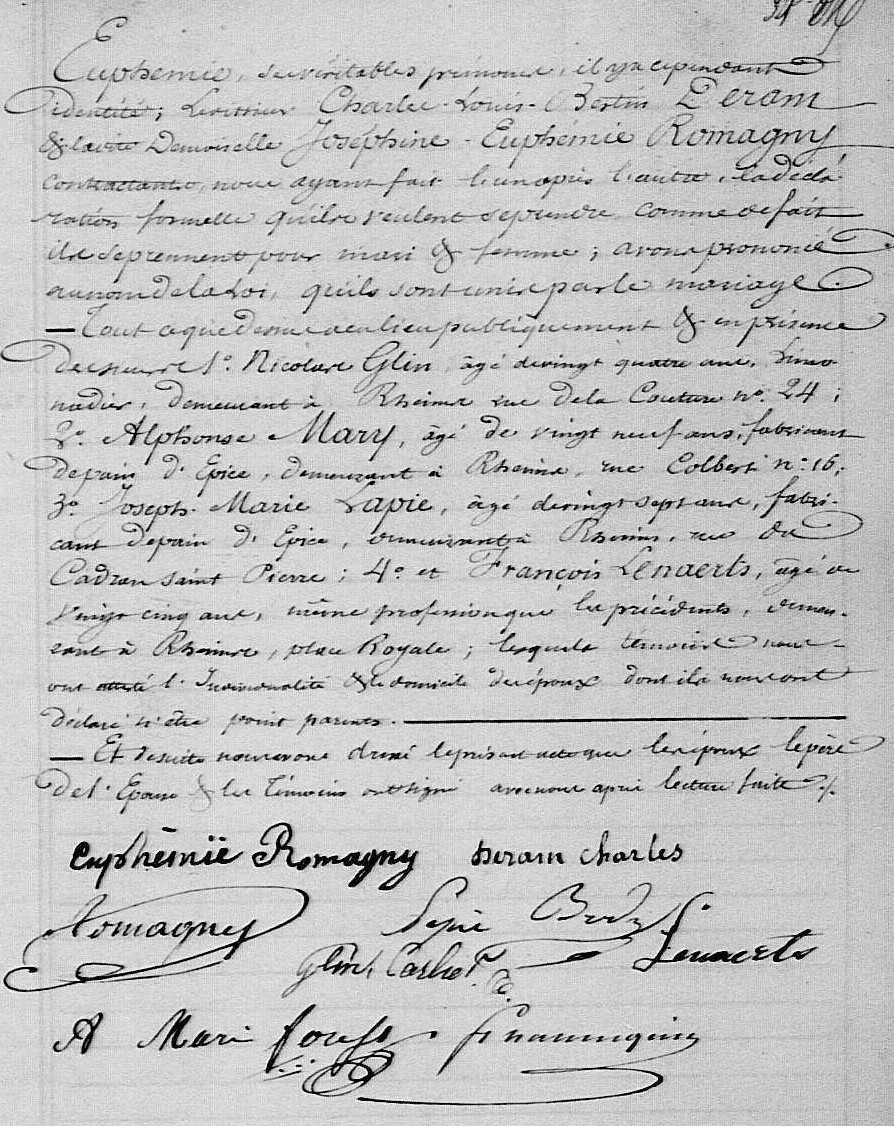 Euphémie, ses véritables prénoms, il y a cependant
identité; Lesusdits Charles-Louis-Bertin Deram
& ladite Demoiselle Joséphine-Euphémie Romagny
contractants, nous ayant fait l'un après l'autre, la décla
ration formelle qu'ils veulent se prendre comme de fait
ils se prennent pour mari & femme; avons prononcé
au nom de la Loi, qu'ils sont unis par le mariage
— Tout ce que dessus a eu lieu publiquement & en présence
des sieurs 1º. Nicolas Glin, âgé de vingt quatre ans, limo
nadier, demeurant à Rheims rue de la Couture nº. 24;
2º. Alphonse Mary, âgé de vingt neuf ans, fabricant
de pain d'Epice, demeurant à Rheims, rue Colbert nº 16;
3º Joseph-Marie Lapie, âgé de vingt sept ans, fabri-
cant de pain d'Epice, demeurant à Rheims, rue du
Cadran saint Pierre; 4º et François Lenaerts, âgé de
vingt cinq ans, même profession que les précédents, demeu-
rant à Rheims, place Royale; lesquels témoins nous
ont attesté l'Individualité & le domicile des époux dont ils nous ont
déclaré n'être point parents. —
— Et desuite nous avons dressé le présent acte que les époux le père
de l'Epouse & les témoins ont signé avec nous après lecture faite ./.
euphémië Romagny Deram charles
Romagny Lenaerts
Glin
A Mari